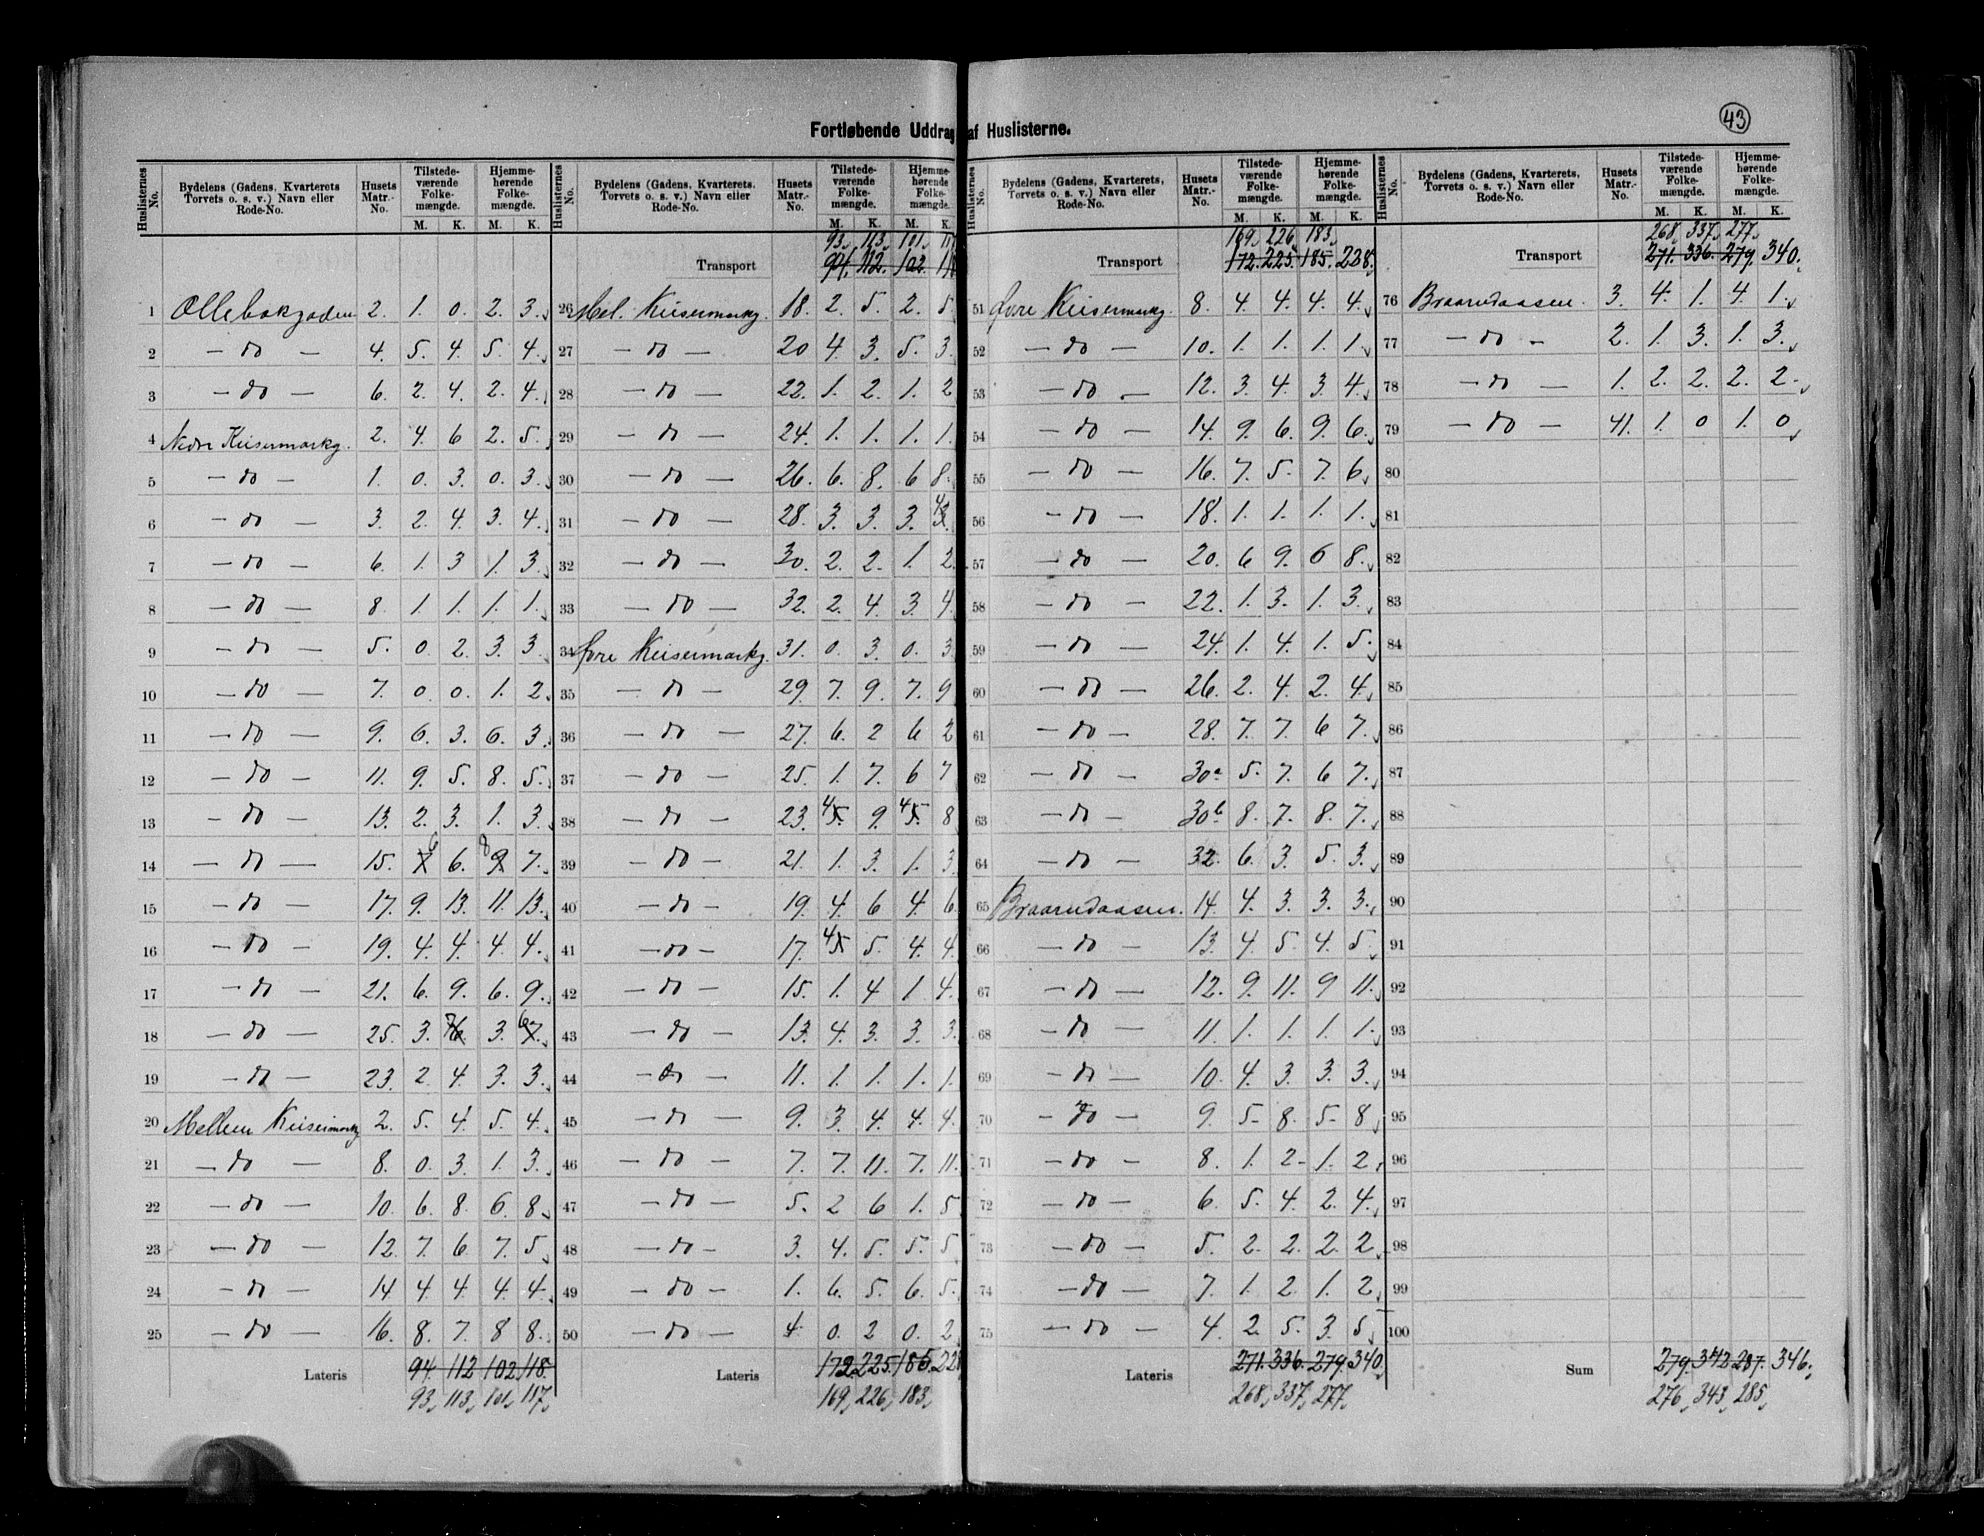 43
Fortløbende Uddrag af Huslisterne.
Huslisternes No. | Bydelens (Gadens, Kvarterets Torvets o. s. v.) Navn eller Rode-No. | Husets Matr.-No. | Tilstedeværende Folkemængde. M. K. | Hjemmehørende Folkemængde. M. K.
1 Ollebakgaden 2. 1. 0. 2. 3.
2 — do — 4. 5. 4. 5. 4.
3 — do — 6. 2. 4. 2. 4.
4 Nedre Keisermarkg. 2. 4. 6 2. 5.
5 — do — 1. 0. 3. 0. 3.
6 — do — 3. 2. 4. 3. 4.
7 — do — 6. 1. 3 1. 3.
8 — do — 8. 1. 1. 1. 1.
9 — do — 5. 0 2. 3. 3.
10 — do — 7. 0. 0. 1. 2.
11 — do — 9. 6. 3. 6. 3.
12 — do — 11. 9. 5. 8. 5.
13 — do — 13. 2. 3. 1. 3.
14 — do — 15. 6 6. 8 7.
15 — do — 17. 9. 13. 11. 13.
16 — do — 19. 4. 4. 4. 4.
17 — do — 21. 6. 9. 6. 9.
18 — do — 25. 3. 7 3. 6
19 — do — 23. 2. 4. 3. 3.
20 Mellem Keisermarkg 2. 5. 4. 5. 4.
21 — do — 8. 0. 3. 1. 3.
22 — do — 10. 6. 8. 6. 8.
23 — do — 12. 7. 6. 7. 5.
24 — do — 14 4. 4. 4. 4.
25 — do — 16. 8. 7. 8 8.
Lateris 94. 112 102. 118.
93. 113. 101. 117.
Huslisternes No. | Bydelens (Gadens, Kvarterets, Torvets o. s. v.) Navn eller Rode-No. | Husets Matr.-No. | Tilstedeværende Folkemængde. M. K. | Hjemmehørende Folkemængde. M. K.
93. 113. 101.
Transport 94. 112. 102.
26 Mel. Keisermarkg. 18. 2. 5. 2. 5.
27 — do — 20 4. 3. 5. 3.
28 — do — 22. 1. 2. 1. 2
29 — do — 24. 1. 1. 1. 1.
30 — do — 26. 6. 8. 6 8.
31 — do — 28. 3. 3. 3. 4
32 — do — 30. 2. 2. 1. 2.
33 — do — 32. 2. 4. 3. 4.
34 Øvre Keisermarkg. 31. 0. 3. 0. 3
35 — do — 29. 7. 9. 7. 9
36 — do — 27. 6. 2 6 2
37 — do — 25. 1. 7. 6 7
38 — do — 23. 4 9. 4 8
39 — do — 21. 1. 3. 1. 3
40 — do — 19. 4. 6 4. 6.
41 — do — 17. 4 5. 4. 4.
42 — do — 15. 1. 4 1 4.
43 — do — 13. 4. 3. 3. 3.
44 — do — 11. 1. 1. 1. 1.
45 — do — 9. 3. 4. 4. 4.
46 — do — 7. 7. 11. 7. 11.
47 — do — 5. 2 6 1. 5
48 — do — 3. 4. 5. 5. 5
49 — do — 1. 6. 5. 6. 5.
50 — do — 4 0. 2 0. 2
Lateris 172. 225. 185. 228
169. 226. 183.
Huslisternes No. | Bydelens (Gadens, Kvarterets, Torvets o. s. v.) Navn eller Rode-No. | Husets Matr.-No. | Tilstedeværende Folkemængde. M. K. | Hjemmehørende Folkemængde. M. K.
169. 226. 183.
Transport 172. 225. 185. 228.
51 Øvre Keisermarkg. 8. 4. 4. 4. 4.
52 — do — 10. 1. 1. 1. 1.
53 — do — 12. 3. 4. 3. 4.
54 — do — 14. 9. 6. 9. 6.
55 — do — 16. 7. 5. 7. 6.
56 — do — 18. 1. 1. 1. 1.
57 — do — 20. 6 9. 6 8.
58 — do — 22. 1. 3. 1. 3.
59 — do — 24. 1. 4. 1. 5.
60 — do — 26. 2. 4. 2. 4.
61 — do — 28. 7. 7. 6 7.
62 — do — 30a 5. 7. 6 7.
63 — do — 30b 8. 7. 8. 7.
64 — do — 32. 6. 3. 5. 3.
65 Braarudaasen. 14. 4. 3. 3. 3.
66 — do — 13. 4. 5. 4. 5.
67 — do — 12. 9. 11. 9 11.
68 — do — 11. 1. 1. 1. 1.
69 — do — 10. 4. 3. 3. 3.
70 — do 9. 5. 8. 5. 8.
71 — do — 8. 1. 2. 1. 2.
72 — do — 6. 5. 4. 2. 4.
73 — do — 5. 2. 2. 2. 2
74 — do — 7. 1. 2. 1. 2
75 — do — 4. 2. 5. 3. 5.
Lateris 271. 336. 279. 340.
268. 337. 277.
Huslisternes No. | Bydelens (Gadens, Kvarterets, Torvets o. s. v.) Navn eller Rode-No. | Husets Matr.-No. | Tilstedeværende Folkemængde. M. K. | Hjemmehørende Folkemængde. M. K.
268. 337. 277.
Transport 271. 336. 279. 340.
76 Braarudaasen. 3. 4. 1. 4. 1.
77 — do — 2. 1. 3. 1. 3.
78 — do — 1. 2. 2. 2. 2.
79 — do — 41. 1. 0 1. 0.
80
81
82
83
84
85
86
87
88
89
90
91
92
93
94
95
96
97
98
99
100
Sum 279. 342 287. 346.
276. 343. 285.